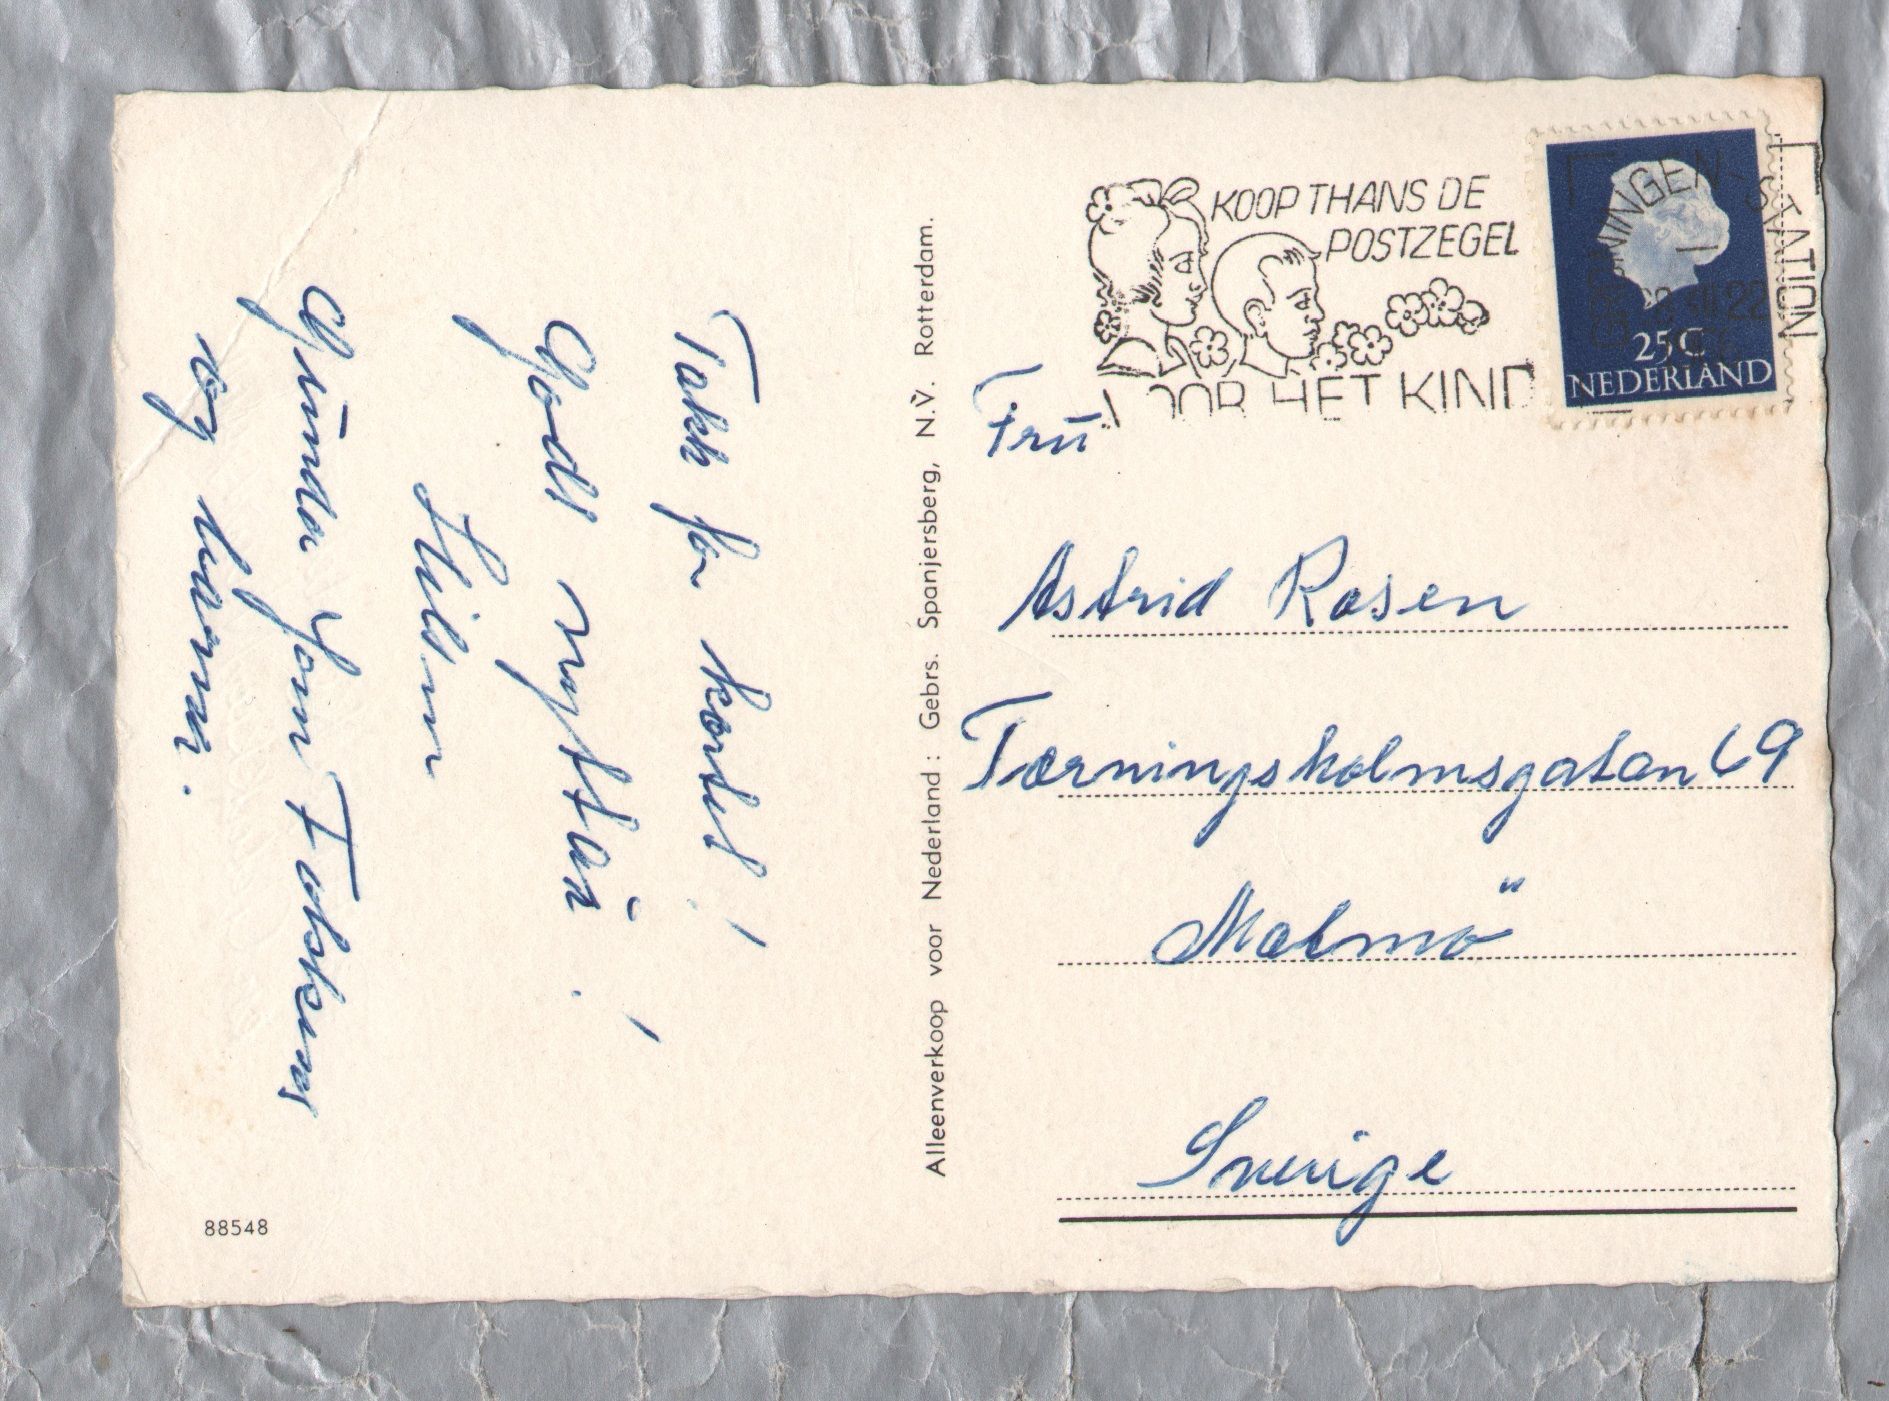 Takk for kortet!
Godt nyttår!
Hilsen
Gunda Jan Fokkens
og barna.
88548
Alleenverkoop voor Nederland: Gebrs. Spanjersberg, N.V. Rotterdam.
KOOP THANS DE
POSTZEGEL
VOOR HET KIND
NINGEN-STATION
25 C
NEDERLAND
Fru
Astrid Rosen
Tærningsholmsgatan 69
Malmö
Sverige